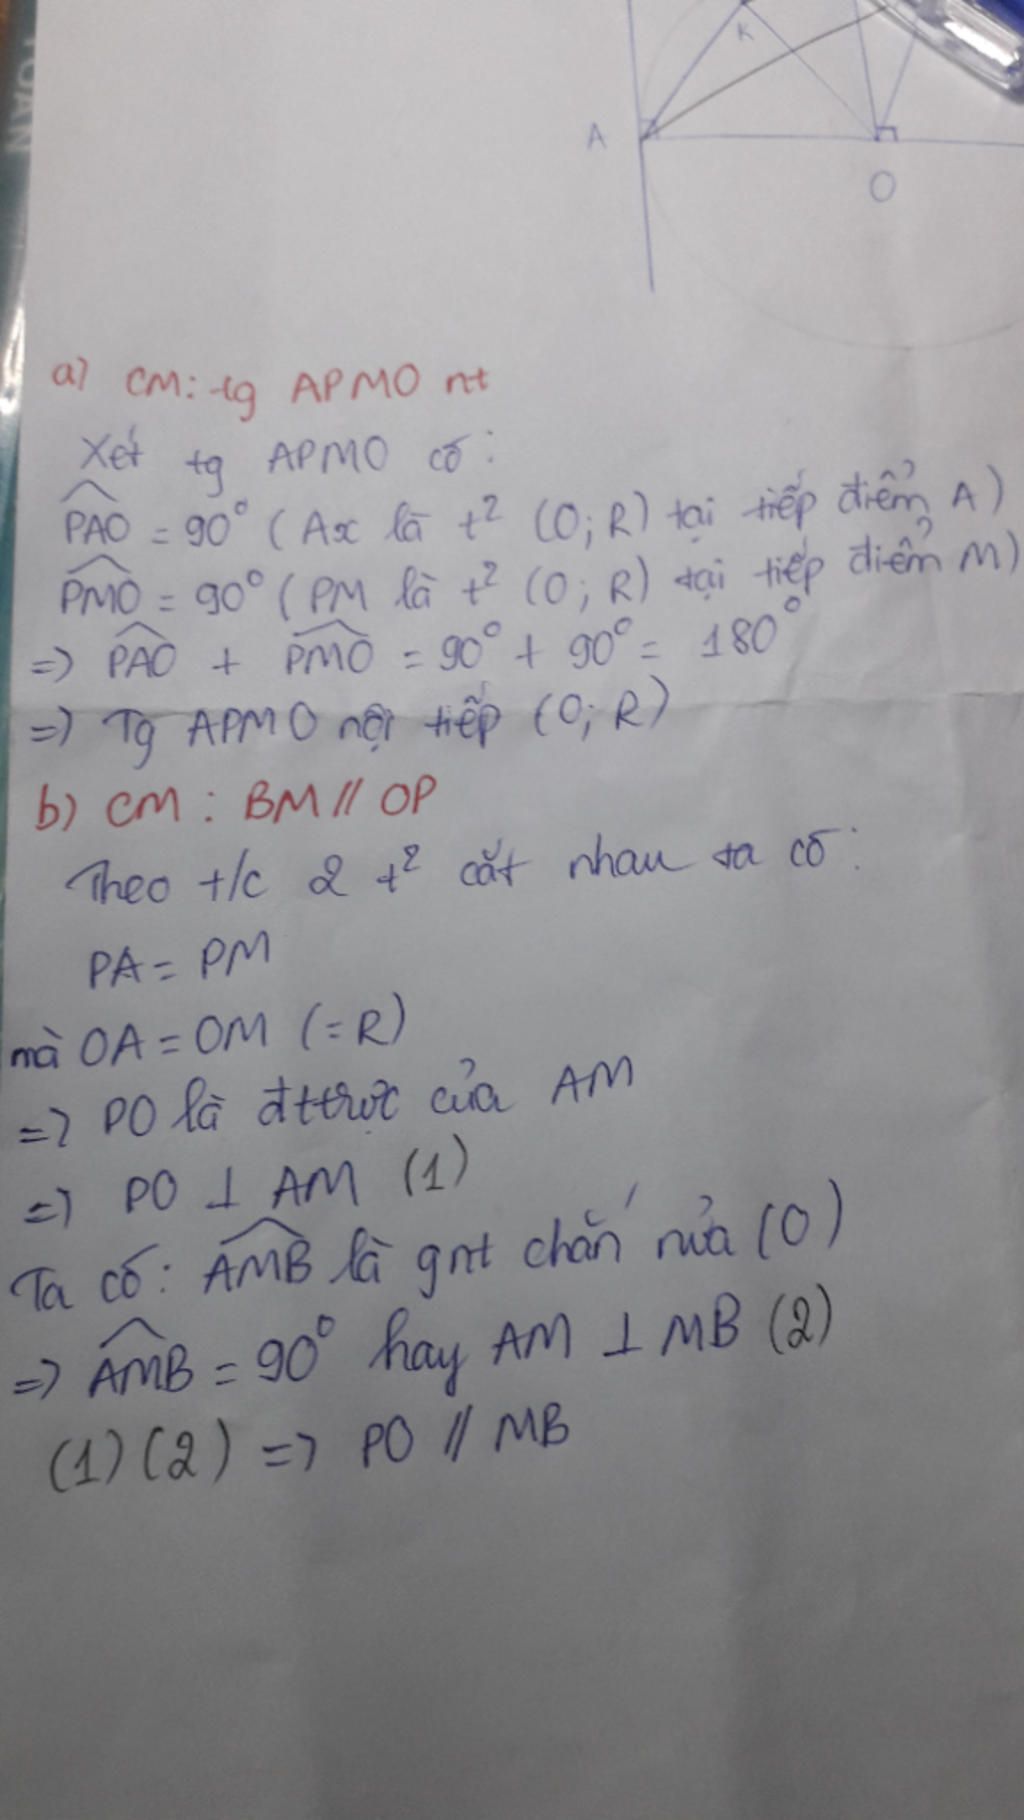 TOÁN
K
A
O
a) CM: tg APMO nt
Xét tg APMO có:
$\widehat{PAO}$ = 90° (Ax là t² (O; R) tại tiếp điểm A)
$\widehat{PMO}$ = 90° (PM là t² (O; R) tại tiếp điểm M)
=> $\widehat{PAO}$ + $\widehat{PMO}$ = 90° + 90° = 180°
=> Tg APMO nội tiếp (O; R)
b) CM: BM // OP
Theo t/c 2 t² cắt nhau ta có:
PA = PM
mà OA = OM (= R)
=> PO là đttrực của AM
=> PO ⊥ AM (1)
Ta có: $\widehat{AMB}$ là gnt chắn nửa (O)
=> $\widehat{AMB}$ = 90° hay AM ⊥ MB (2)
(1) (2) => PO // MB